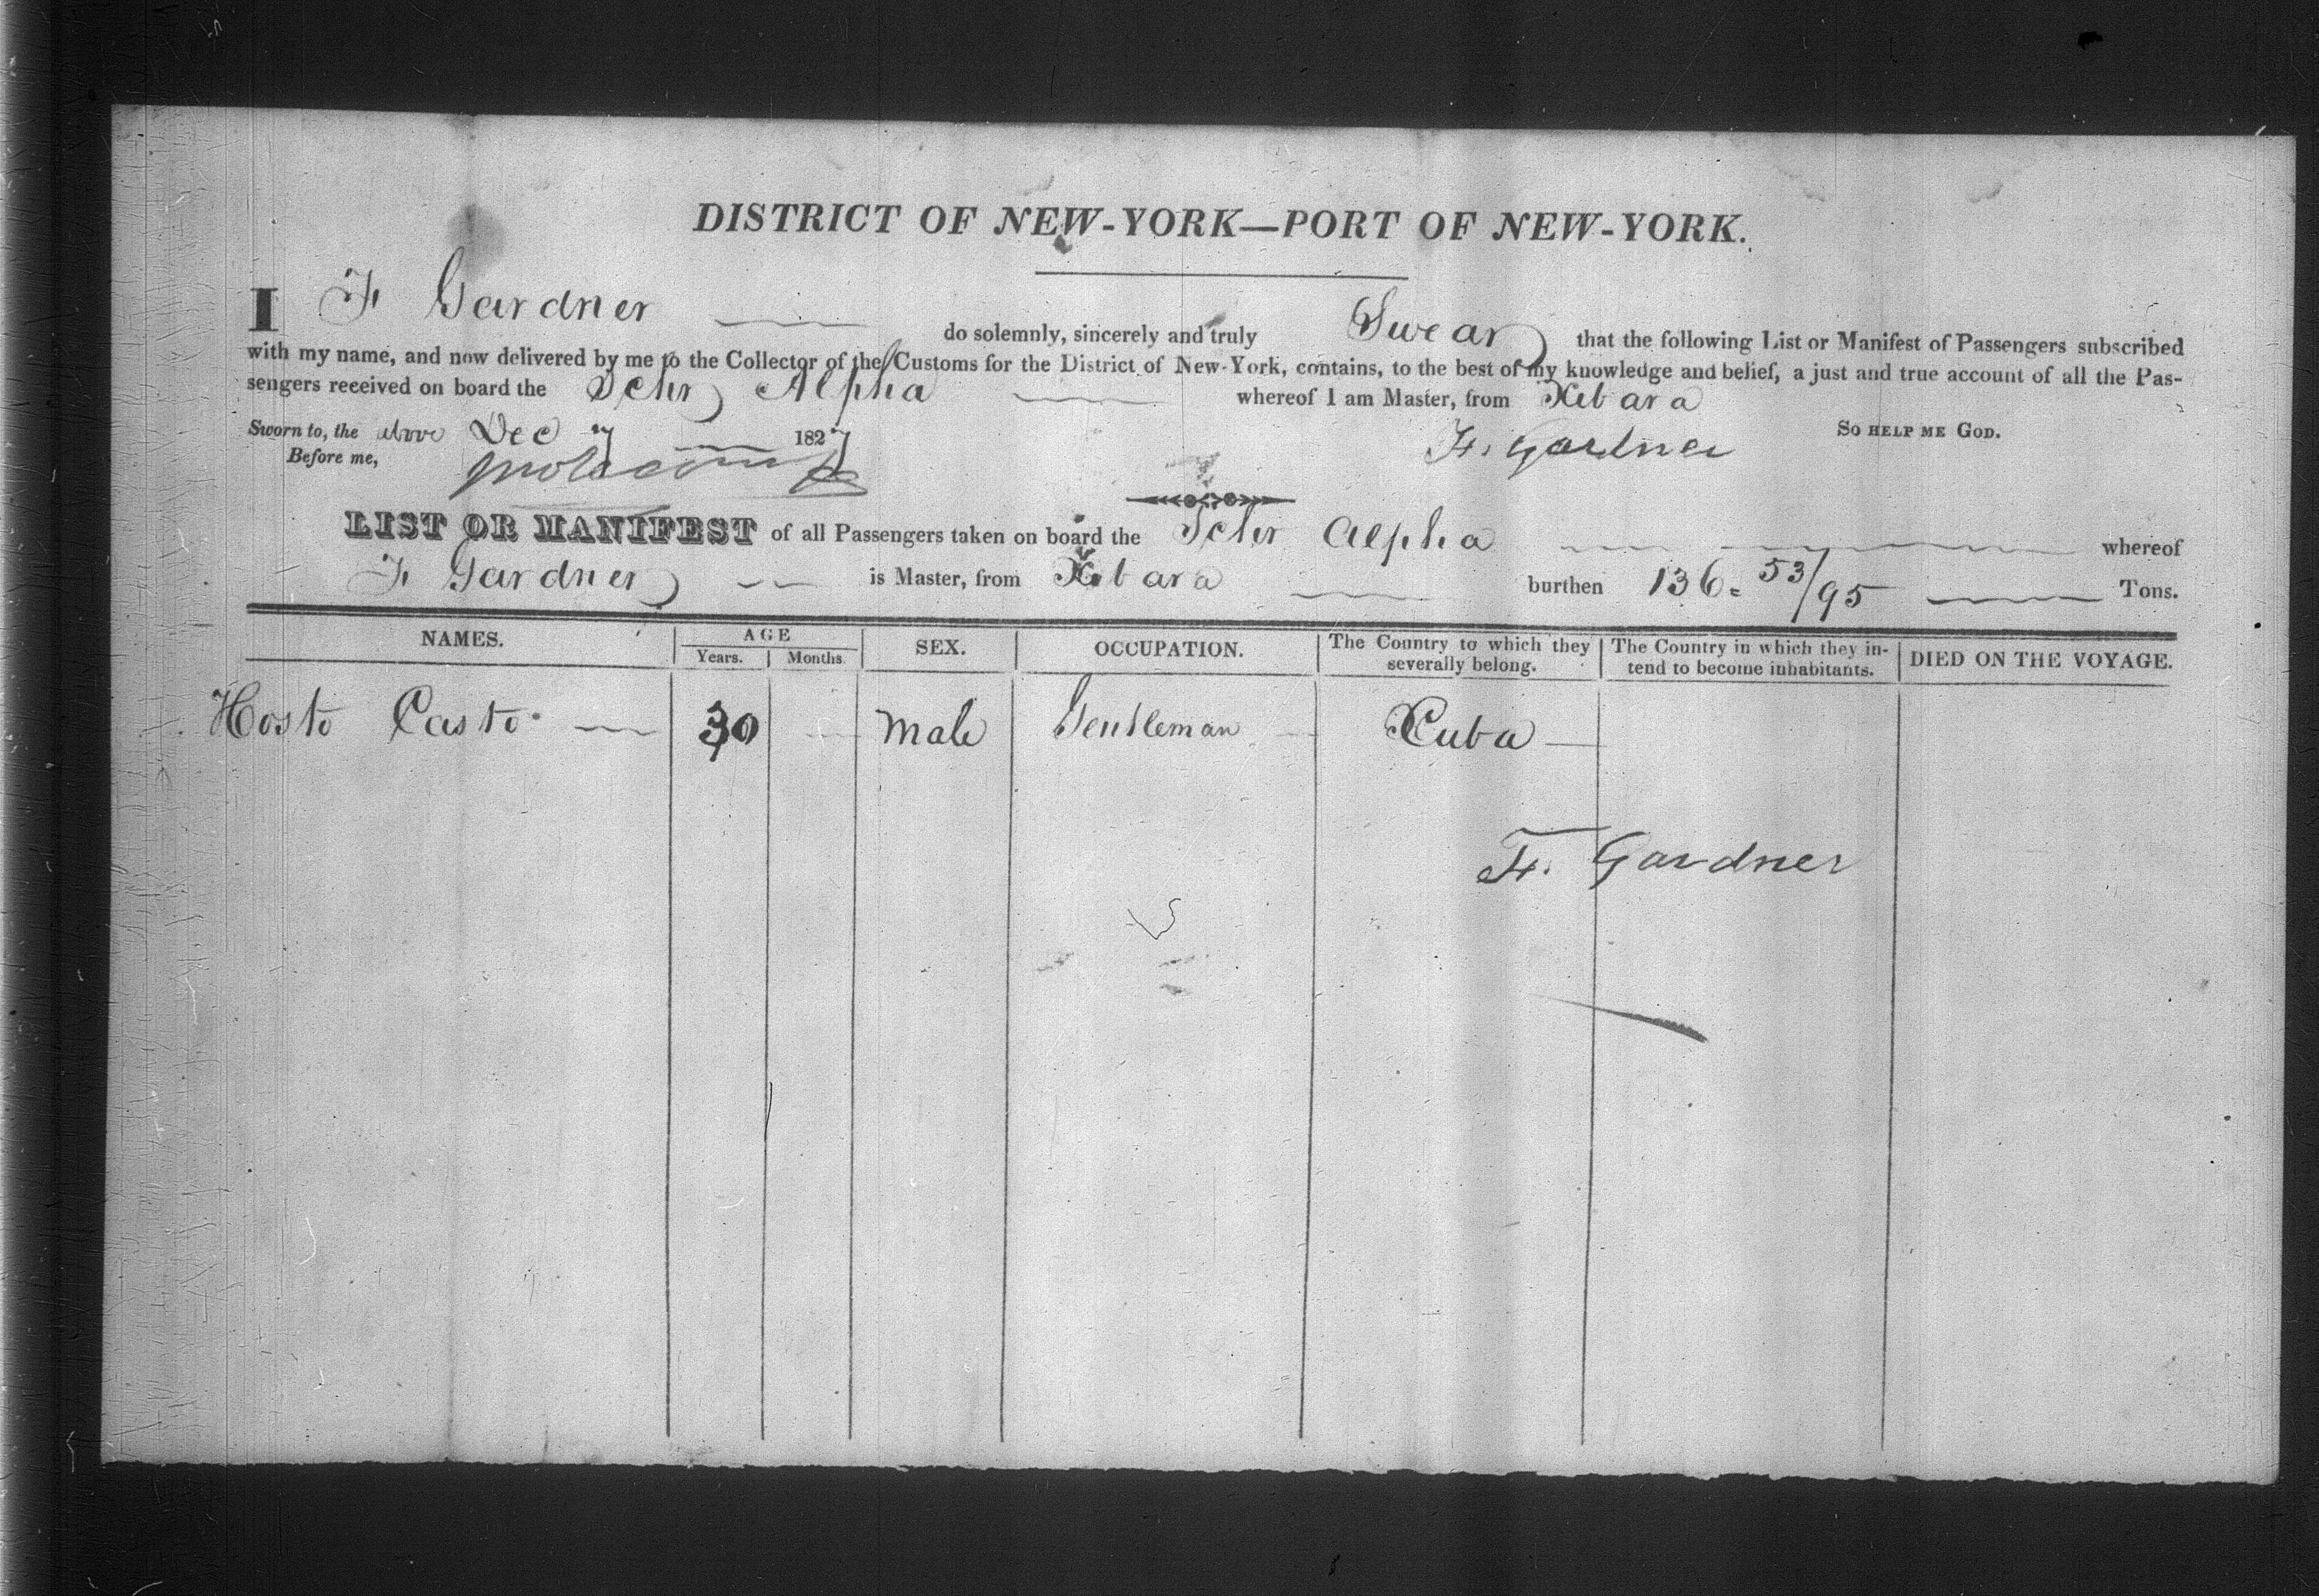 DISTRICT OF NEW-YORK—PORT OF NEW-YORK.
I F Gardner do solemnly, sincerely and truly Swear that the following List or Manifest of Passengers subscribed
with my name, and now delivered by me to the Collector of the Customs for the District of New-York, contains, to the best of my knowledge and belief, a just and true account of all the Pas-
sengers received on board the Schr Alpha whereof I am Master, from Xibara
Sworn to, the above Dec 7 1827 F. Gardner So HELP ME GOD.
Before me,
LIST OR MANIFEST of all Passengers taken on board the Schr Alpha whereof
F Gardner is Master, from Xibara burthen 136 53/95 Tons.
NAMES. AGE Years. Months SEX. OCCUPATION. The Country to which they severally belong. The Country in which they in-tend to become inhabitants. DIED ON THE VOYAGE.
Hosto Casto 30 Male Gentleman Cuba
F. Gardner